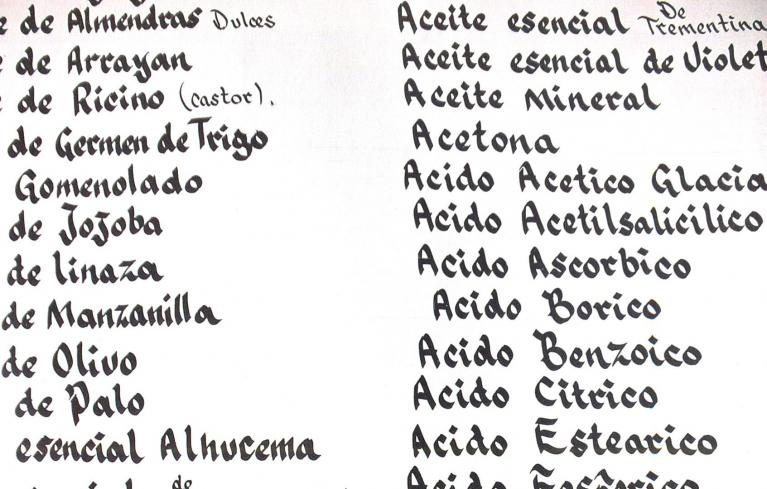 de Almendras Dulces
de Arrayan
de Ricino (castor).
de Germen de Trigo
Gomenolado
de Jojoba
de linaza
de Manzanilla
de Olivo
de Palo
esencial Alhucema
de
Aceite esencial De Trementina
Aceite esencial de Violet
Aceite Mineral
Acetona
Acido Acetico Glacia
Acido Acetilsalicilico
Acido Ascorbico
Acido Borico
Acido Benzoico
Acido Citrico
Acido Estearico
Acido